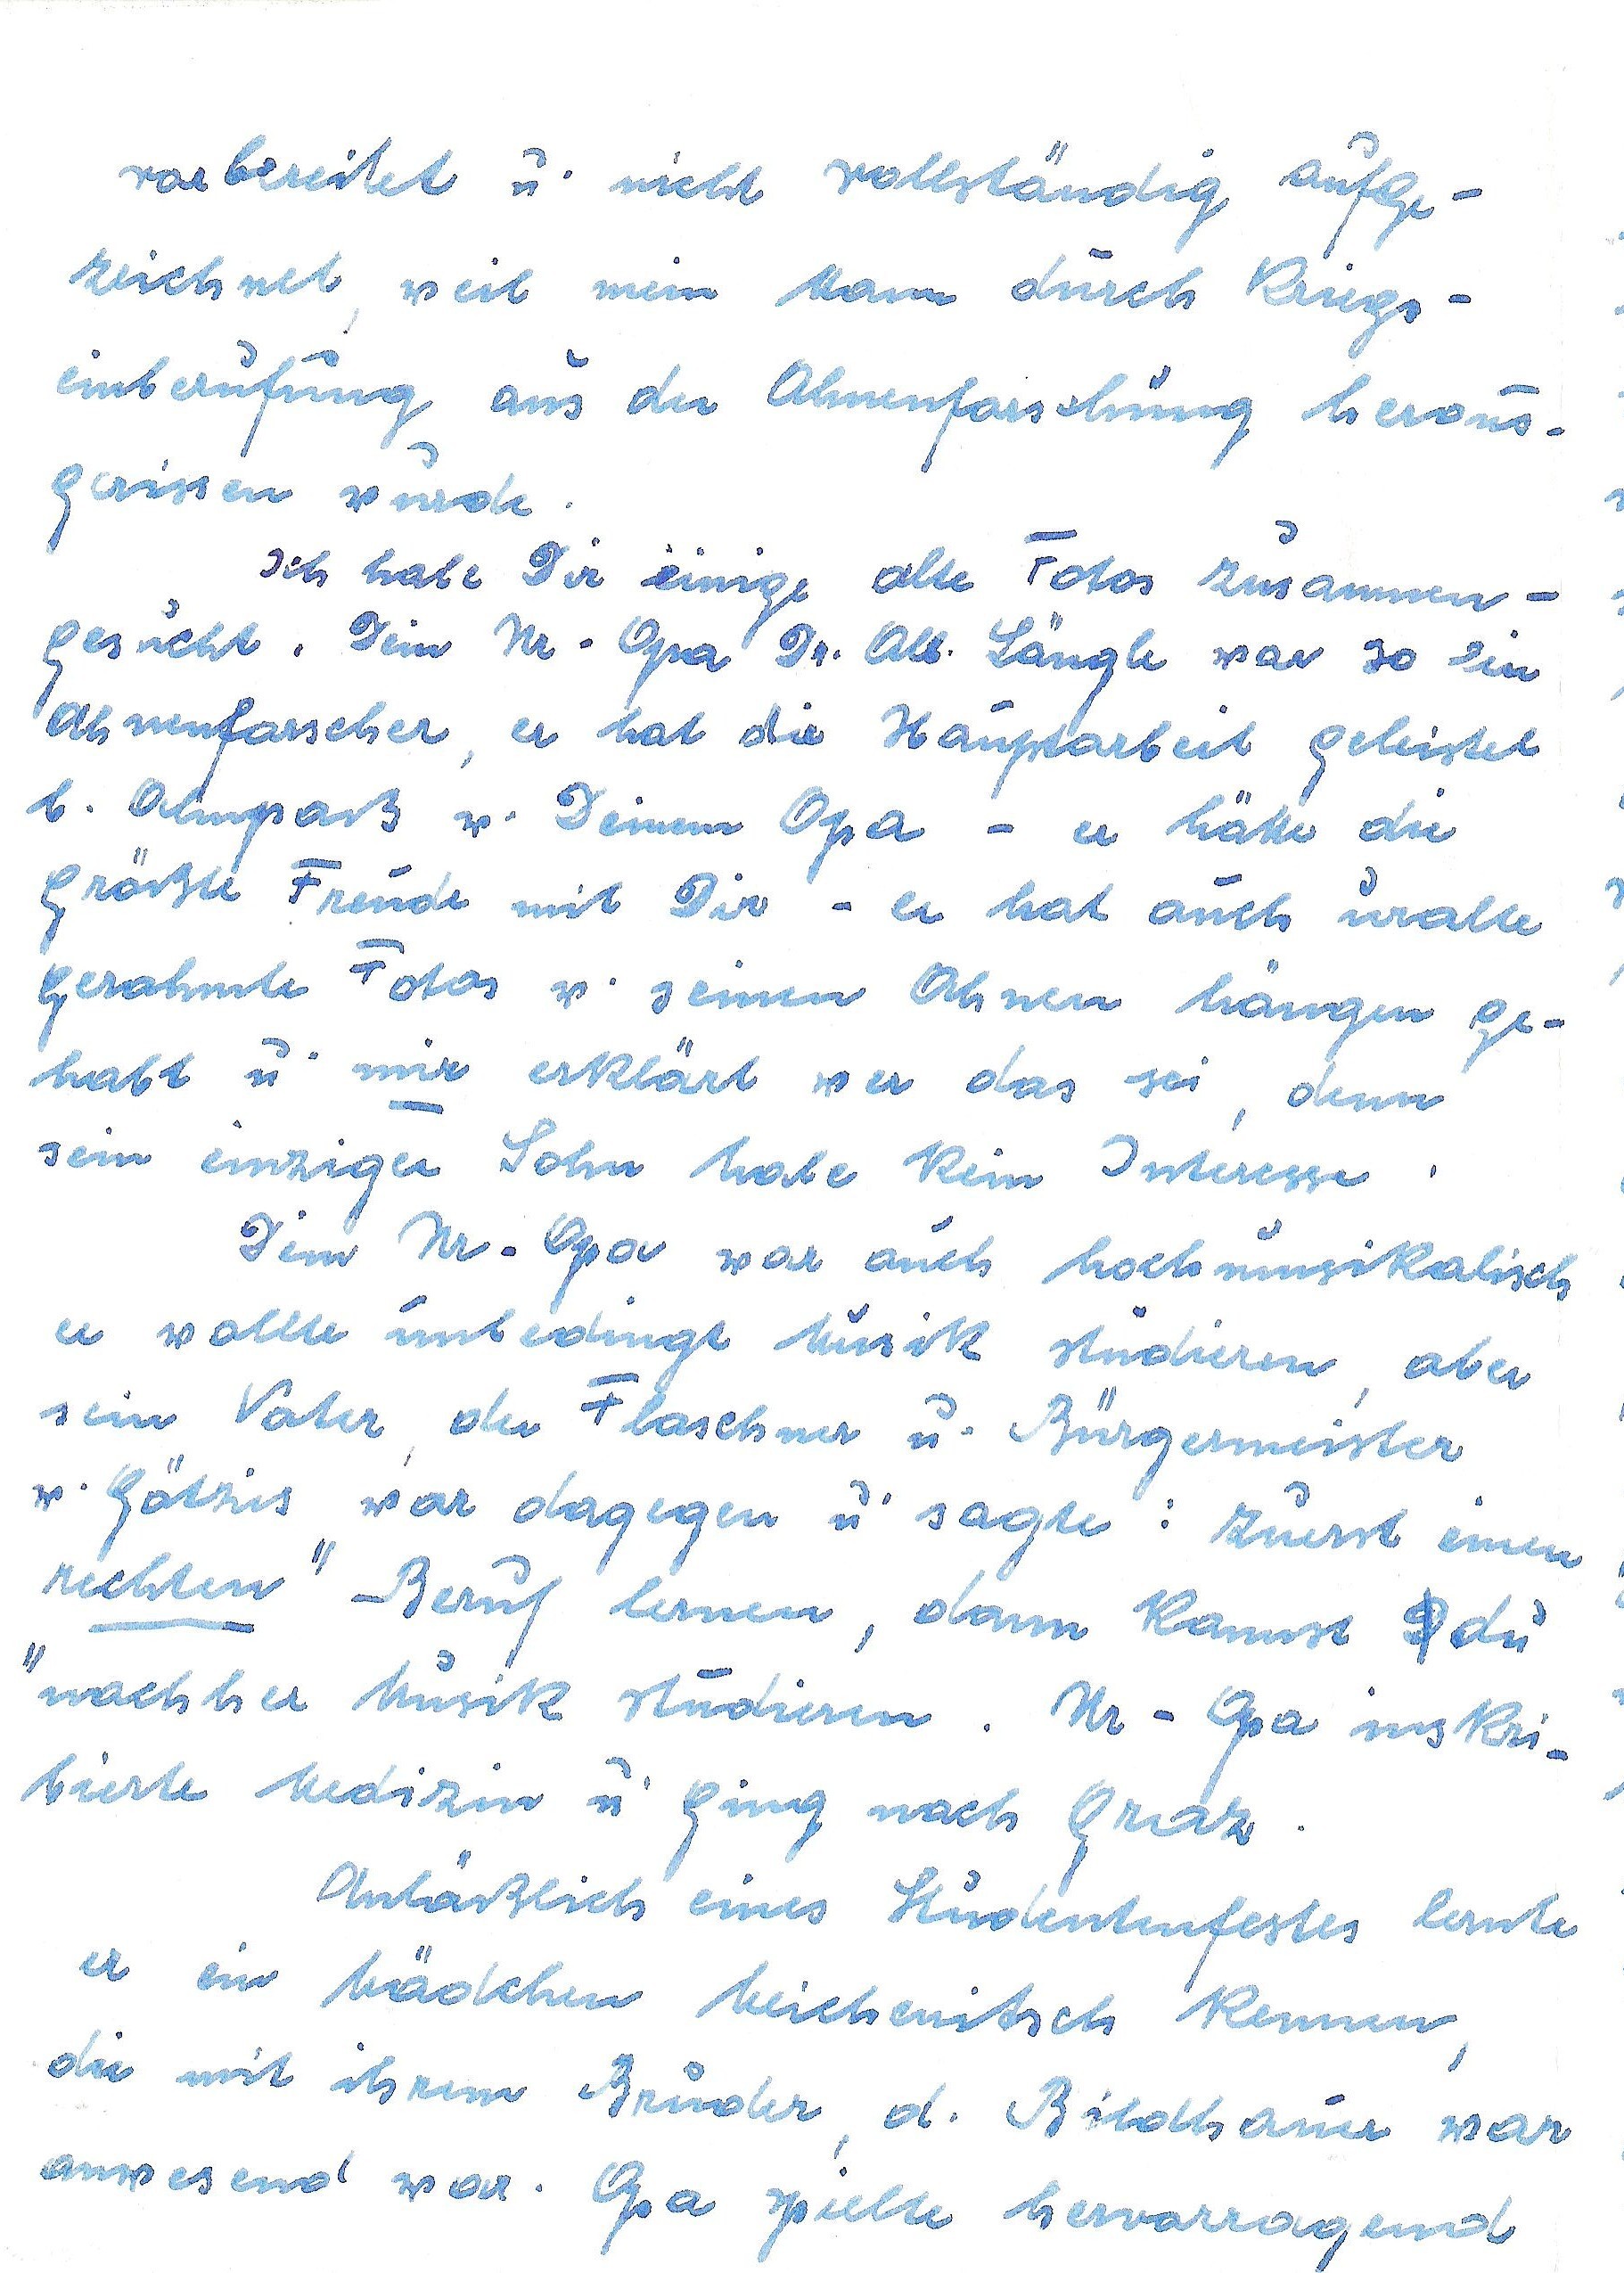 vorbereitet u. nicht vollständig aufge-
zeichnet, weil mein Mann durch Kriegs-
einberufung aus der Ahnenforschung heraus-
gerissen wurde.
Ich habe Dir einige alte Fotos zusammen-
gesucht. Dein Ur-Opa Dr. Alb. Längle war so ein
Ahnenforscher, er hat die Hauptarbeit geleistet
b. Ahnpaß v. Deinem Opa - er hätte die
größte Freude mit Dir - er hat auch uralte
gerahmte Fotos v. seinen Ahnen hängen ge-
habt u. mir erklärt wer das sei, denn
sein einziger Sohn habe kein Interesse.
Dein Ur-Opa war auch hochmusikalisch
er wollte unbedingt Musik studieren, aber
sein Vater, der Flaschner u. Bürgermeister
v. Götzis war dagegen u. sagte: zuerst einen
rechten" Beruf lernen, dann kannst du
"nachher Musik studieren. Ur-Opa inskri-
bierte Medizin u. ging nach Graz.
Anläßlich eines Studentenfestes lernte
er ein Mädchen Meichenitsch kennen,
die mit ihrem Bruder, d. Bildhauer war
anwesend war. Opa spielte hervorragend